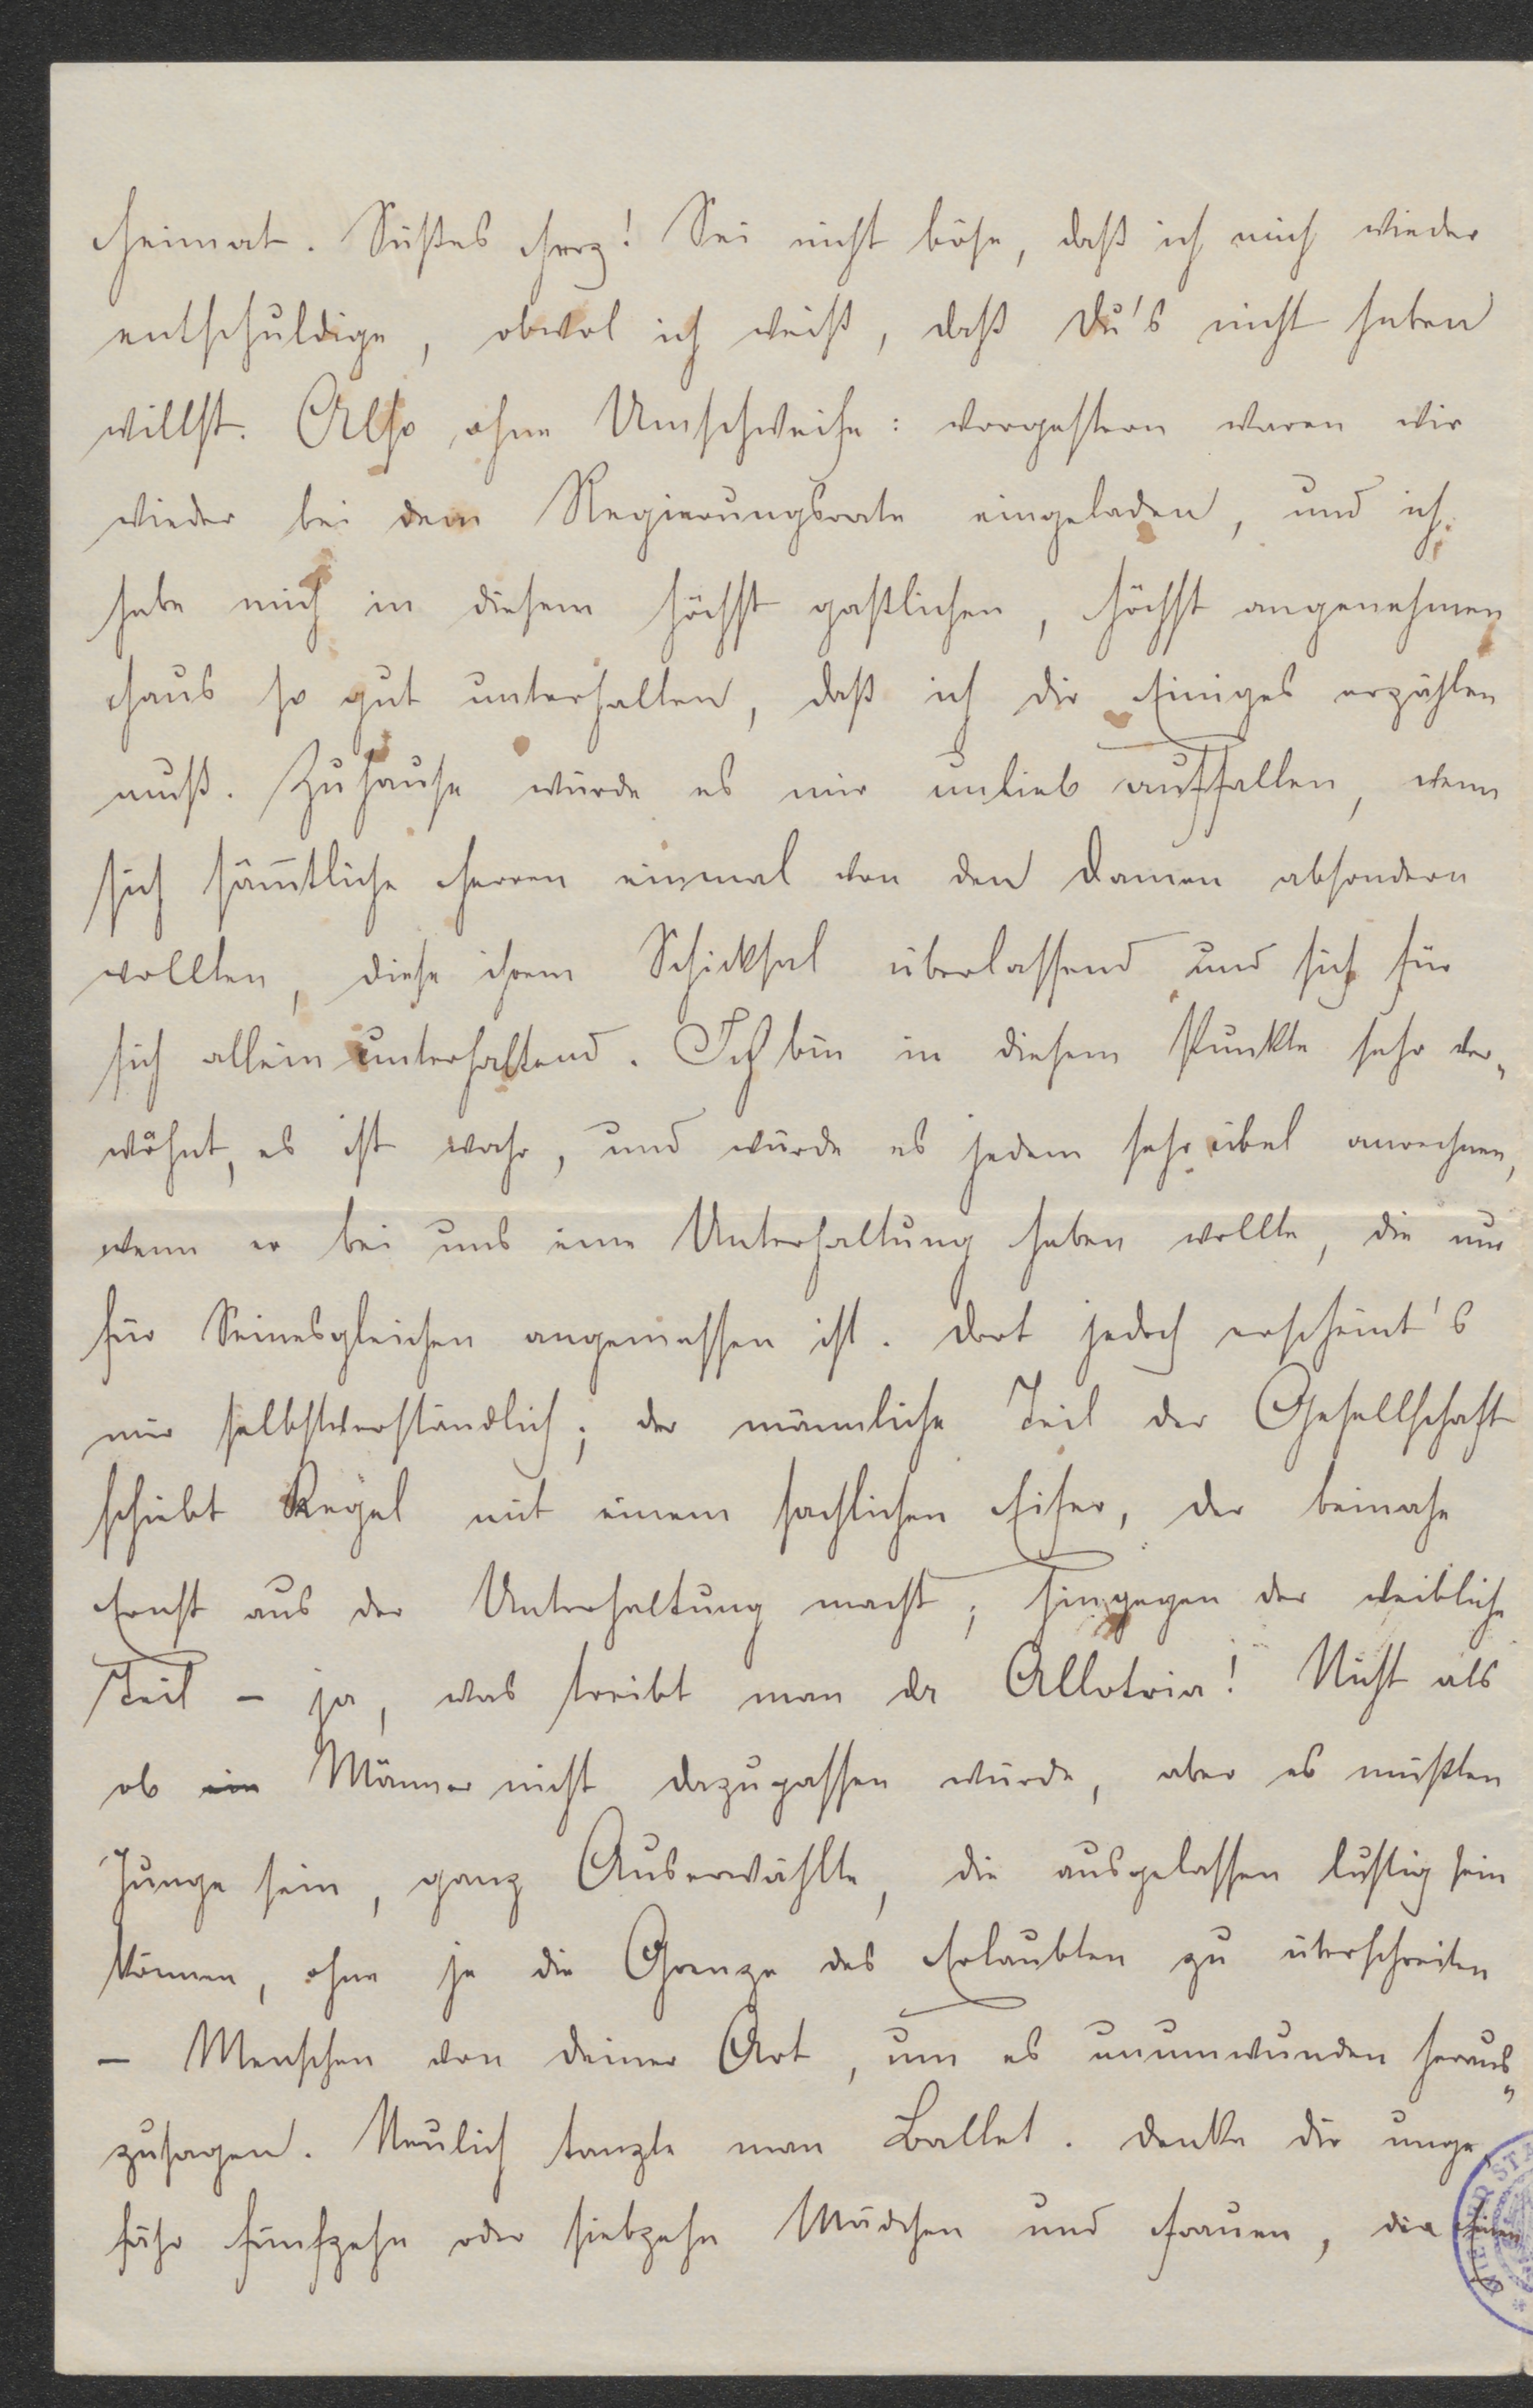 Heimat. Süßes Herz! Sei nicht böse, daß ich mich wieder
entschuldige, obwol ich weiß, daß Du's nicht haben
willst. Also ohne Umschweife: vorgestern waren wir
wieder bei dem Regierungsrate eingeladen, und ich
habe mich in diesem höchst gastlichen, höchst angenehmen
Haus so gut unterhalten, daß ich dir Einiges erzählen
muß. Zuhause würde es mir unlieb auffallen, wenn
sich sämtliche Herren einmal von den Damen absondern
wollten, diese ihrem Schicksal überlassend und sich für
sich allein unterhaltend. Ich bin in diesem Punkte sehr ver„
wöhnt, es ist wahr, und würde es jedem sehr übel anrechnen,
wenn er bei uns eine Unterhaltung haben wollte, die nur
für Seinesgleichen angemessen ist. Dort jedoch erscheint's
mir selbstverständlich; der männliche Teil der Gesellschaft
schiebt Kegel mit einem sachlichen Eifer, der beinahe
Ernst aus der Unterhaltung macht; hingegen der weibliche
Teil – ja, was treibt man da Allotria! Nicht als
ob ein Männer nicht dazupassen würde, aber es müßten
Junge sein, ganz Auserwählte, die ausgelassen lustig sein
können, ohne je die Grenze des Erlaubten zu überschreiten
– Menschen von deiner Art, um es unumwunden heraus„
zusagen. Neulich tanzte man Ballet. Denke dir unge
fähr fünfzehn oder siebzehn Mädchen und Frauen, die